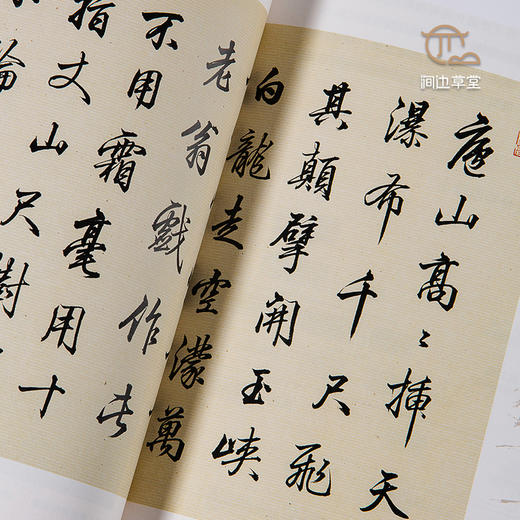 廬山高〻插天
瀑布千尺飛
其顛擘開玉峽
白龍走空濛萬
老翁戲作長
不用霜毫用十
指丈山尺樹
論
澗边草堂